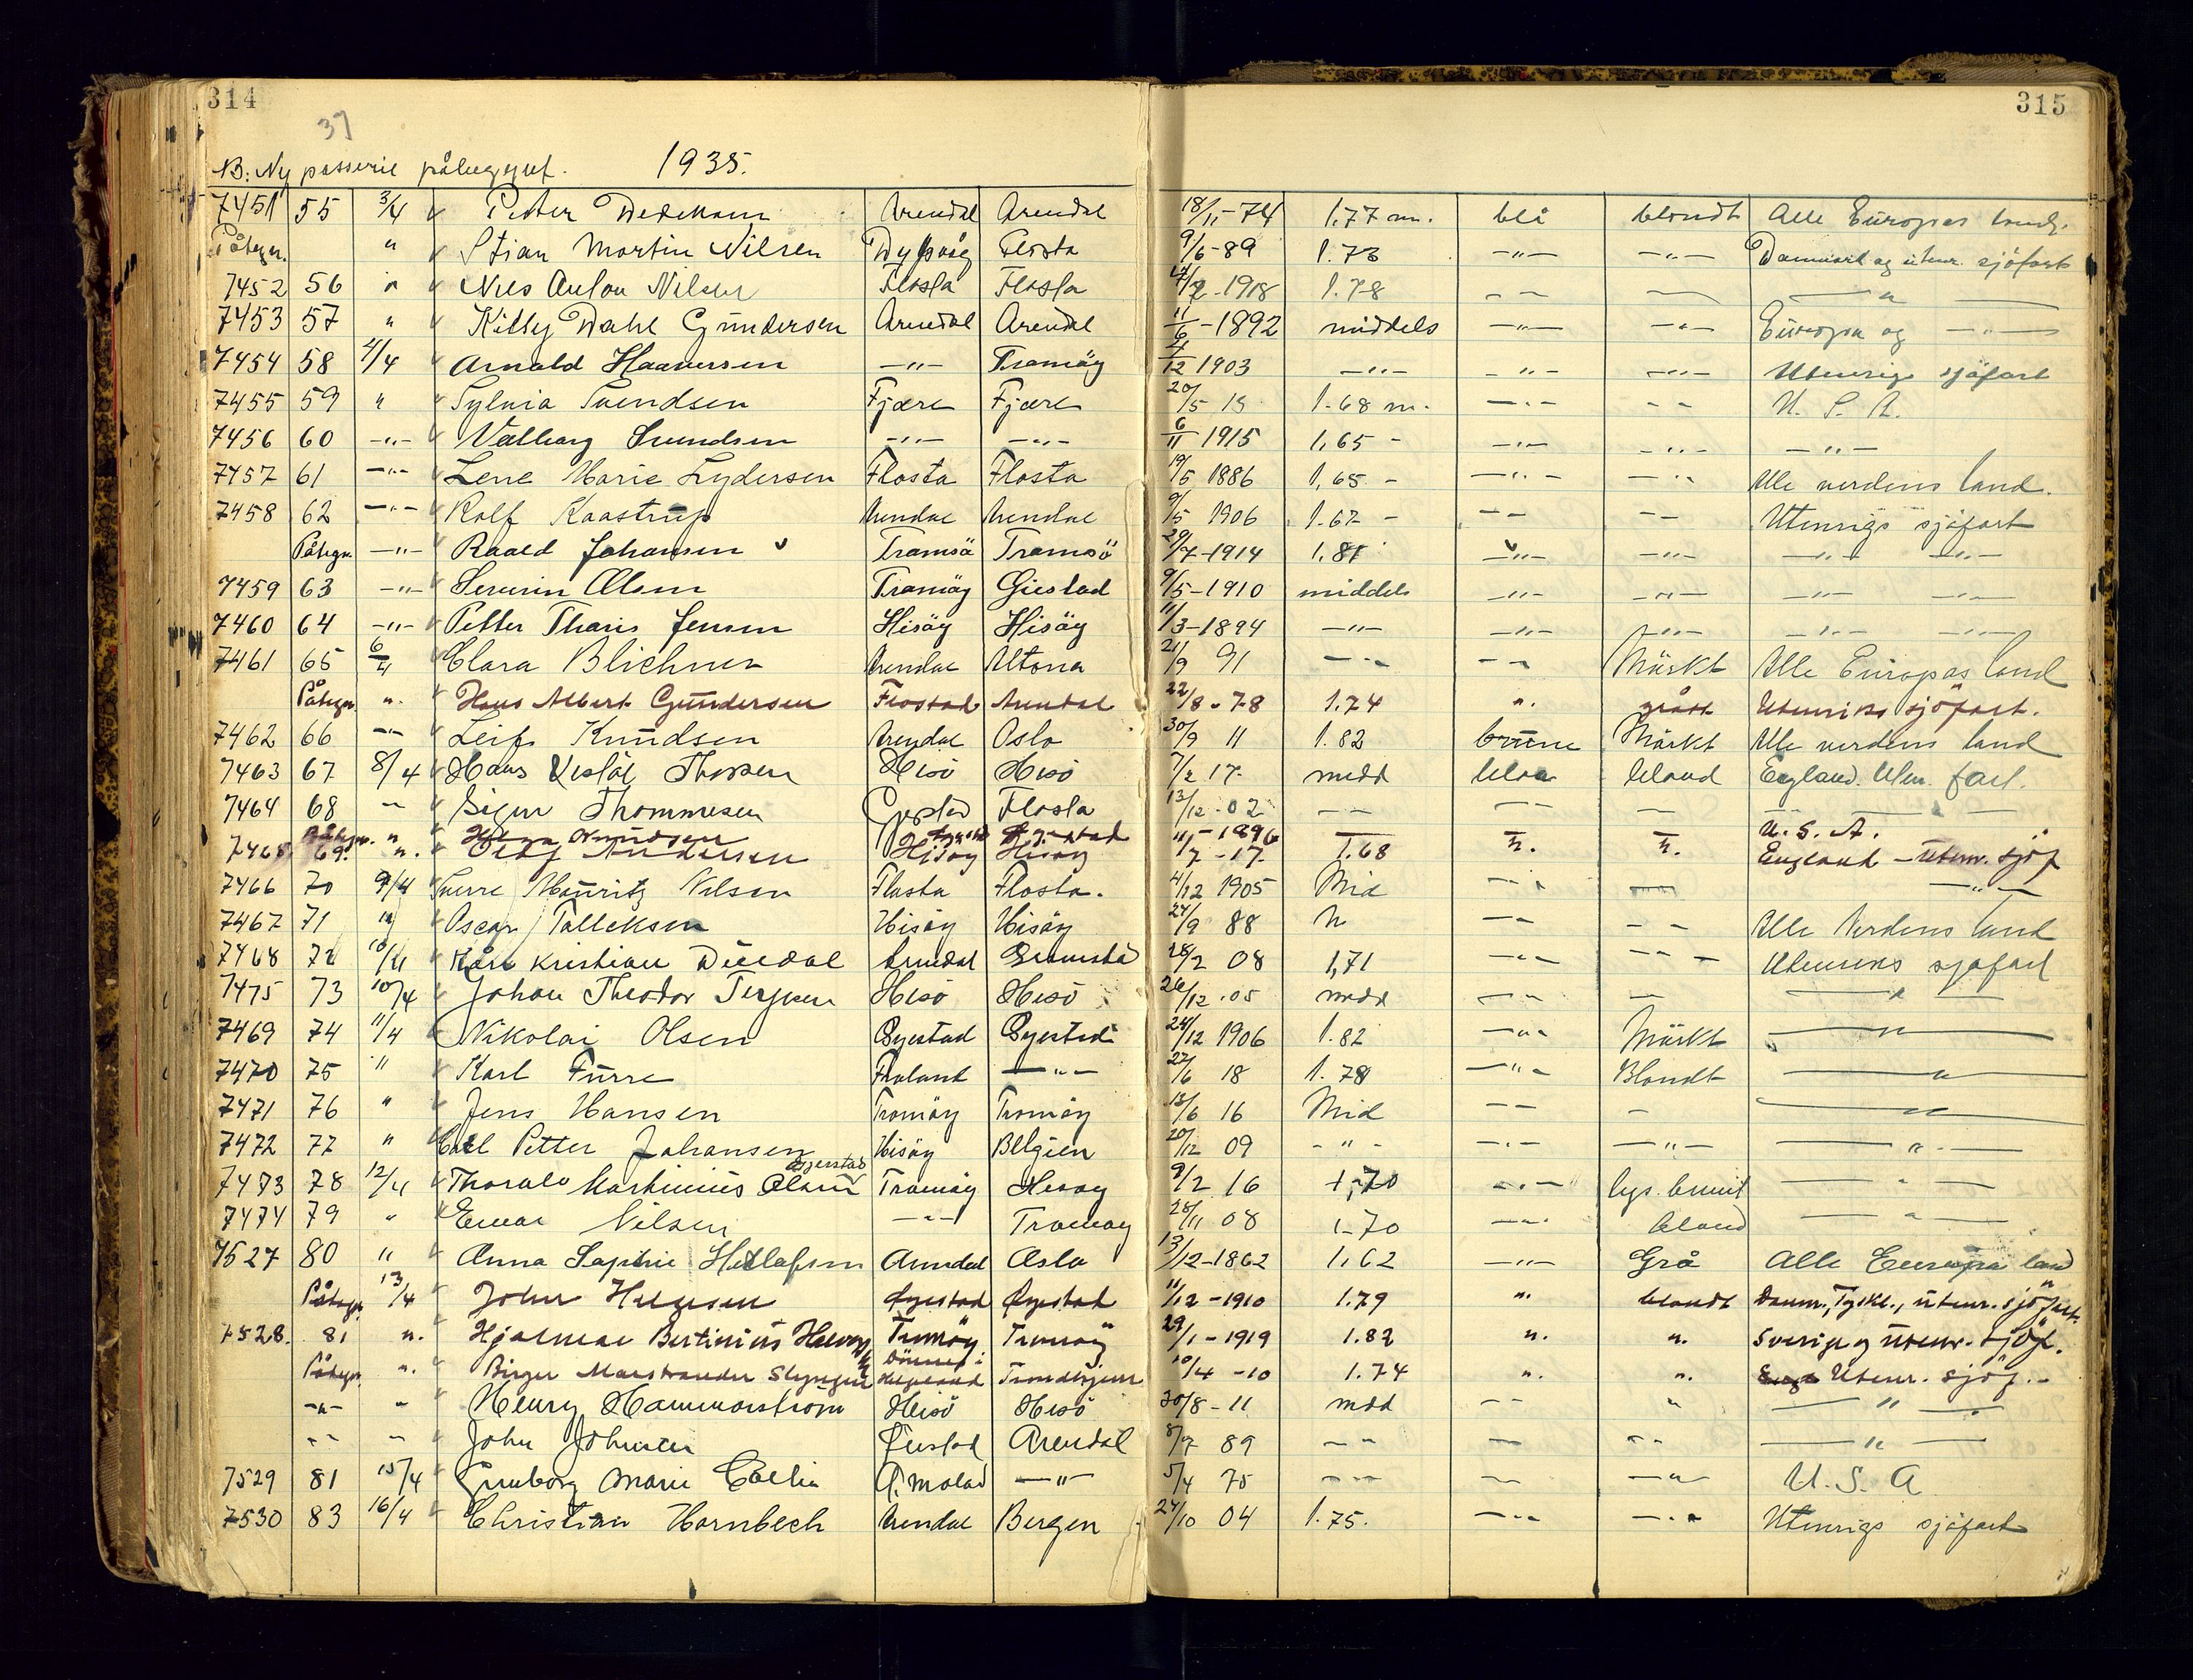 314 315
37
NB: Ny passerie påbegynt. 1935.
7451 55 3/4 Peter Dedekam Arendal Arendal 18/11-74 1.77 m. blå blondt Alle Europas land.
Påtegn. " Stian Martin Nilsen Dypvåg Flosta 9/6-89 1.73 -"- -"- Danmark og utenr. sjöfart
7452 56 " Nils Anton Nilsen Flosta Flosta /2-1918 1.78 - - - "
7453 57 " Kitty Dahl Gundersen Arendal Arendal 11/6-1892 middels -"- -"- Europa og -"-
7454 58 4/4 Arnold Haaversen -"- Tromöy /12 1903 -"- -"- -"- Utenrigs sjöfart
7455 59 " Sylvia Svendsen Fjære Fjære 20/5 15 1.68 m. -"- - - U. S. A.
7456 60 -"- Valborg Svendsen -"- -"- 6/11 1915 1,65 - -"- -"- -"-
7457 61 -"- Lene Marie Lydersen Flosta Flosta 19/5 1886 1,65 - -"- -"- Alle verdens land.
7458 62 -"- Rolf Kaastrup Arendal Arendal 9/5 1906 1.67 - - - - - Utenrigs sjöfart
Påtegn. -"- Roald Johansen Tromsö Tromsö 29/7-1914 1.81 -"- -"- -"- -"-
7459 63 -"- Severin Olsen Tromöy Öiestad 9/5-1910 middels -"- -"- -"- -"-
7460 64 -"- Petter Tharis Jensen Hisöy Hisöy 11/3-1894 -"- -"- -"- -"- -"-
7461 65 6/4 Clara Blichner Arendal Altona 21/9 91 -"- - - Mörkt Alle Europas land
Påtegn. ". Hans Albert Gundersen Flostad Arendal 22/8-78 1.74 ". grått Utenriks sjöfart.
7462 66 -"- Leif Knudsen Arendal Oslo 30/9 11 1.82 brune Mörkt Alle verdens land
7463 67 8/4 Hans Vestöl Thorsen Hisö Hisö 7/2 17 midd blaa blond England. Uten. fart.
7464 68 - Sigur Thommesen Flosta 13/12-02 - - - - - -
Påtegn. " Knudsen Öyestad Öyestad 11/1-1896 - U. S. A.
7465 69. ". Andersen Hisöy Hisöy 1/7-17 1.68 ". ". England - utenr. sjöf
7466 70 9/4 Sverre Mauritz Nilsen Flosta Flosta. 4/12 1905 Mid -"- - -"-
7467 71 " Oscar Talleksen Hisöy Hisöy 24/9 88 " - - - - Alle Verdens land
7468 72 10/4 Kåre Kristian Arendal Grimstad 28/2 08 1,71 -"- - - - Utenriks sjöfart
7475 73 10/4 Johan Theodor Terjesen Hisö Hisö 26/12-05 midd - - - "
7469 74 11/4 Nikolai Olsen Öyestad Öyestad 24/12 1906 1.82 -"- Mörkt "
7470 75 " Karl Furre Froland -"- 27/6 18 1.78 -"- Blondt "
7471 76 " Jens Hansen Tromöy Tromöy 13/6 16 Mid - - - "
7472 77 " Carl Petter Johansen Hisöy Belgien 20/12 09 -"- -"- -"- -"-
Øyerstad
7473 78 12/4 Thoralv Martinius Olsen Tromöy Hisøy 9/2 16 1,70 -"- lys. brunt -"-
7474 79 " Einar Nilsen -"- Tromøy 28/11 08 1.70 -"- blond -"-
7527 80 " Anna Sophie Arendal Oslo 13/12-1862 1,62 -"- Grå Alle Europa land
Påtegn. 13/4 John Helgesen Øyestad Øyestad 11/12-1910 1.79 ". blondt Danm., Tyskl., utenr. sjöfart.
7528. 81 ". Hjalmar Bertinius Halvors Tromöy Tromöy 29/1-1919 1.82 ". ". Sverige og utenr. sjöf.
Påtegn. ". Birger Marstrander Dönnes i Helgeland Trondhjem 10/4-10 1.74 ". ". Utenr. sjöf.-
-"- " Henry Hammarström Hisö Hisö 20/8-11 mdd - - " "
- - - John Johnsen Øiestad Arendal 8/7 89 - - - - - "
7529 81 15/4 Gunborg Marie -"- 5/4 75 - - - -"- U. S. A
7530 83 16/4 Christian Hornbech Arendal Bergen 24/10 04 1.75. -"- -"- Utenrigs sjöfart